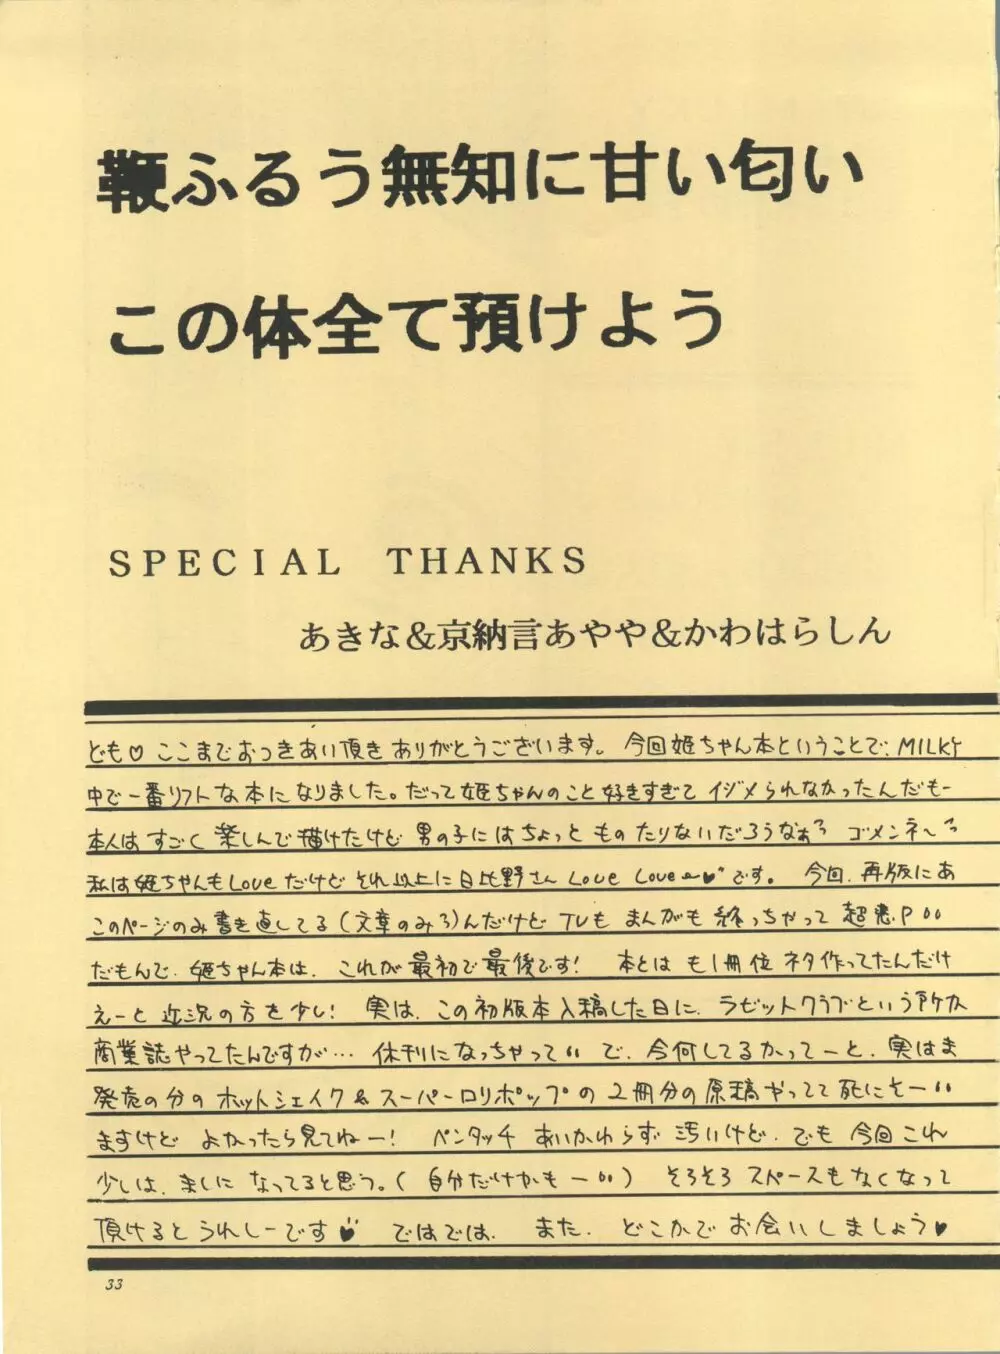 鞭ふるう無知に甘い匂い
この体全て預けよう
SPECIAL THANKS
あきな&京納言あやや&かわはらしん
ども♡ここまでおつきあい頂きありがとうございます。今回姫ちゃん本ということで、MILKY
中で一番ソフトな本になりました。だって姫ちゃんのこと好きすぎてイジメられなかったんだもー
本人はすごく楽しんで描けたけど男の子にはちょっとものたりないだろうなぁ ゴメンネ〜
私は姫ちゃんもLoveだけどそれ以上に日比野さんLove Love〜♥です。 今回、再版にあ
このページのみ書き直してる(文章のみ)んだけどTVもまんがも終っちゃって超悲P
だもんで、姫ちゃん本は、これが最初で最後です! 本とはも1冊位ネタ作ってたんだけ
えーと近況の方を少し! 実は、この初版本入稿した日に、ラビットクラブという
商業誌やってたんですが…休刊になっちゃって で、今何してるかってーと、実はま
発売の分のホットシェイク&スーパーロリポップの2冊分の原稿やってて死にそー
ますけど よかったら見てねー! ペンタッチあいかわらず汚いけど、でも今回これ
少しは、ましになってると思う。(自分だけかもー) そろそろスペースもなくなって
頂けるとうれしーです♥ ではでは、また、どこかでお会いしましょう♥
33